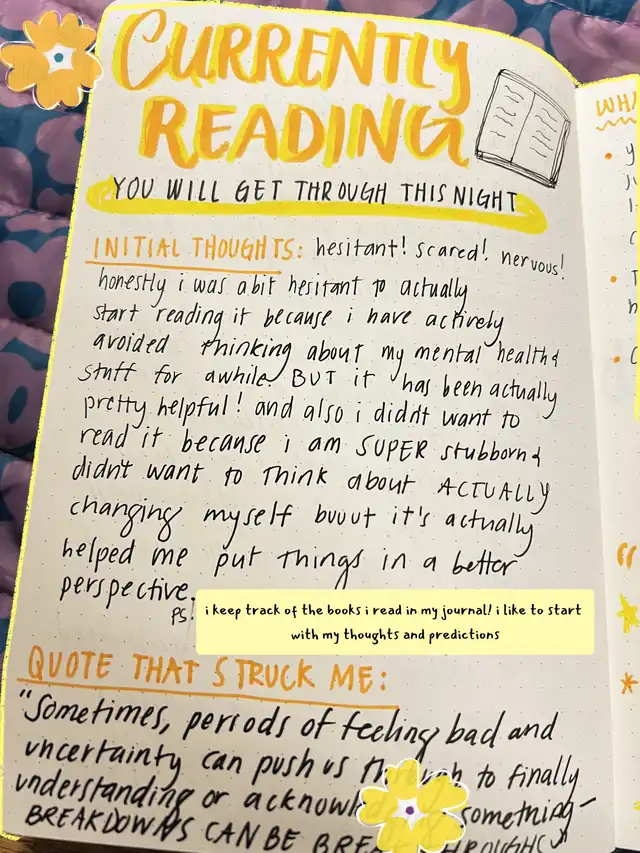 CURRENTLY
READING
YOU WILL GET THROUGH THIS NIGHT
INITIAL THOUGHTS: hesitant! scared! nervous!
honestly i was a bit hesitant to actually
start reading it because i have actively
avoided thinking about my mental health &
stuff for awhile BUT it has been actually
pretty helpful! and also i didnt want to
read it because i am SUPER stubborn &
didn't want to think about ACTUALLY
changing myself buuut it's actually
helped me put things in a better
perspective.
PS:
i keep track of the books i read in my journal! i like to start
with my thoughts and predictions
QUOTE THAT STRUCK ME:
"Sometimes, periods of feeling bad and
uncertainty can push us through to finally
understanding or something-
BREAKDOWNS CAN BE
WHA